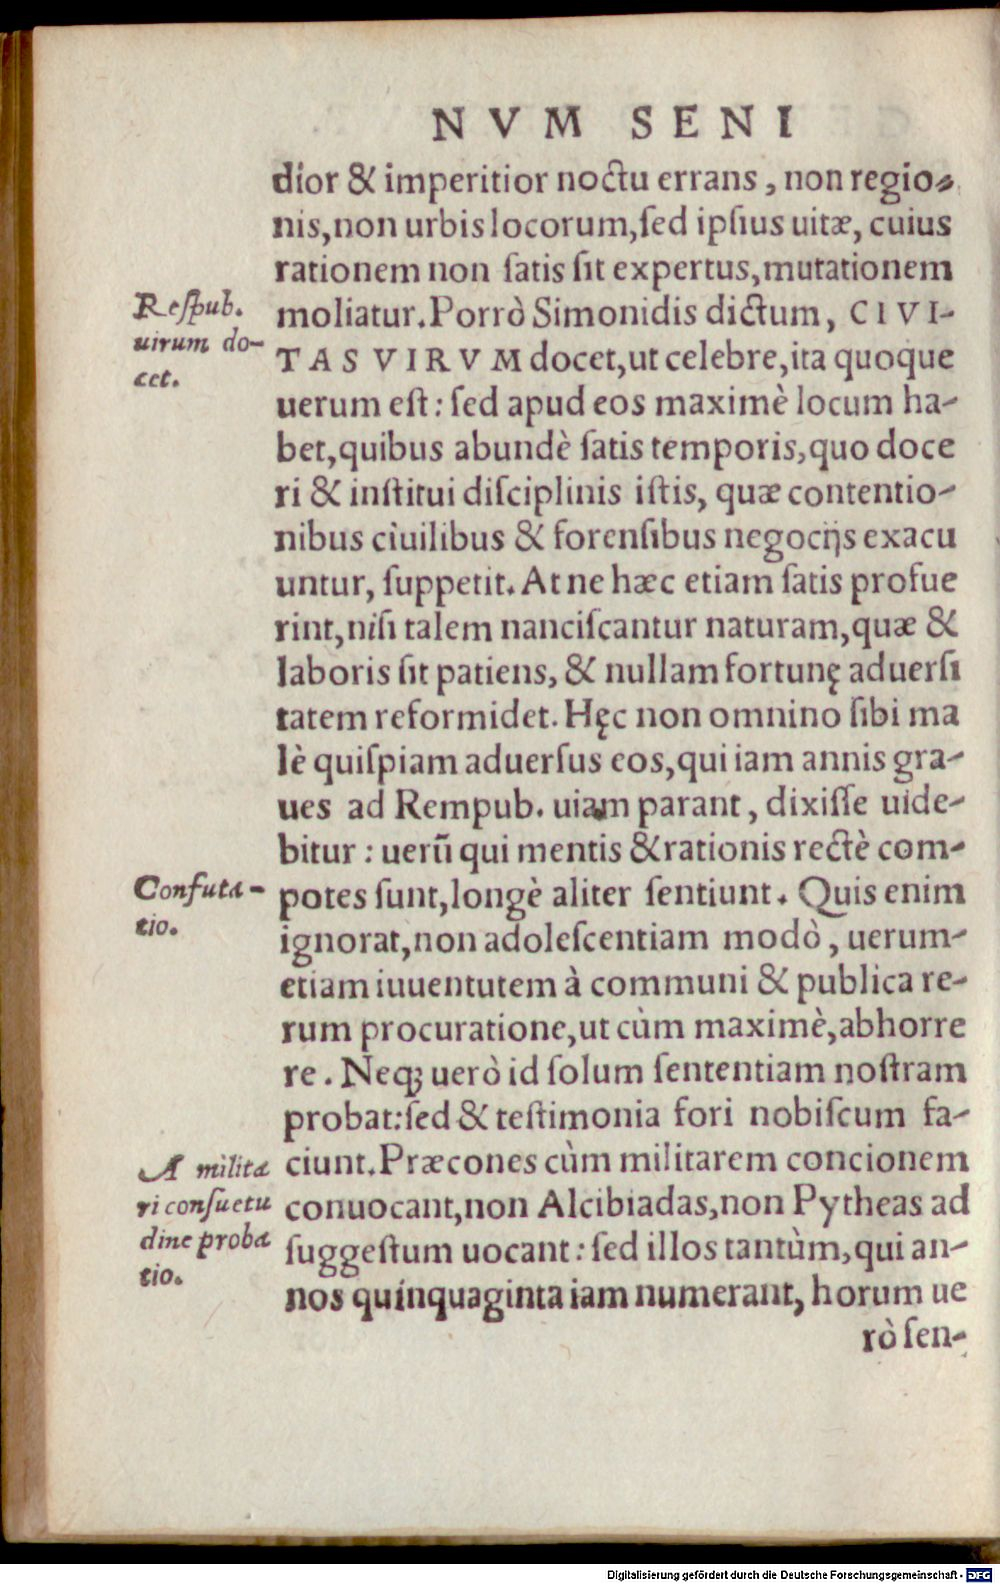 NVM SENI
dior & imperitior noctu errans, non regio-
nis, non urbis locorum, sed ipsius uitæ, cuius
rationem non satis sit expertus, mutationem
Respub.
uirum do-
cet.
moliatur. Porrò Simonidis dictum, CIVI-
TAS VIRVM docet, ut celebre, ita quoque
uerum est: sed apud eos maximè locum ha-
bet, quibus abundè satis temporis, quo doce
ri & institui disciplinis istis, quæ contentio-
nibus ciuilibus & forensibus negocijs exacu
untur, suppetit. At ne hæc etiam satis profue
rint, nisi talem nanciscantur naturam, quæ &
laboris sit patiens, & nullam fortunę aduersi
tatem reformidet. Hęc non omnino sibi ma
lè quispiam aduersus eos, qui iam annis gra-
ues ad Rempub. uiam parant, dixisse uide-
bitur: uerũ qui mentis & rationis rectè com-
Confuta-
tio.
potes sunt, longè aliter sentiunt. Quis enim
ignorat, non adolescentiam modò, uerum-
etiam iuuentutem à communi & publica re-
rum procuratione, ut cùm maximè, abhorre
re. Neq; uerò id solum sententiam nostram
probat: sed & testimonia fori nobiscum fa-
A milita
ri consuetu
dine proba
tio.
ciunt. Præcones cùm militarem concionem
conuocant, non Alcibiadas, non Pytheas ad
suggestum uocant: sed illos tantùm, qui an-
nos quinquaginta iam numerant, horum ue
rò sen-
Digitalisierung gefördert durch die Deutsche Forschungsgemeinschaft - DFG